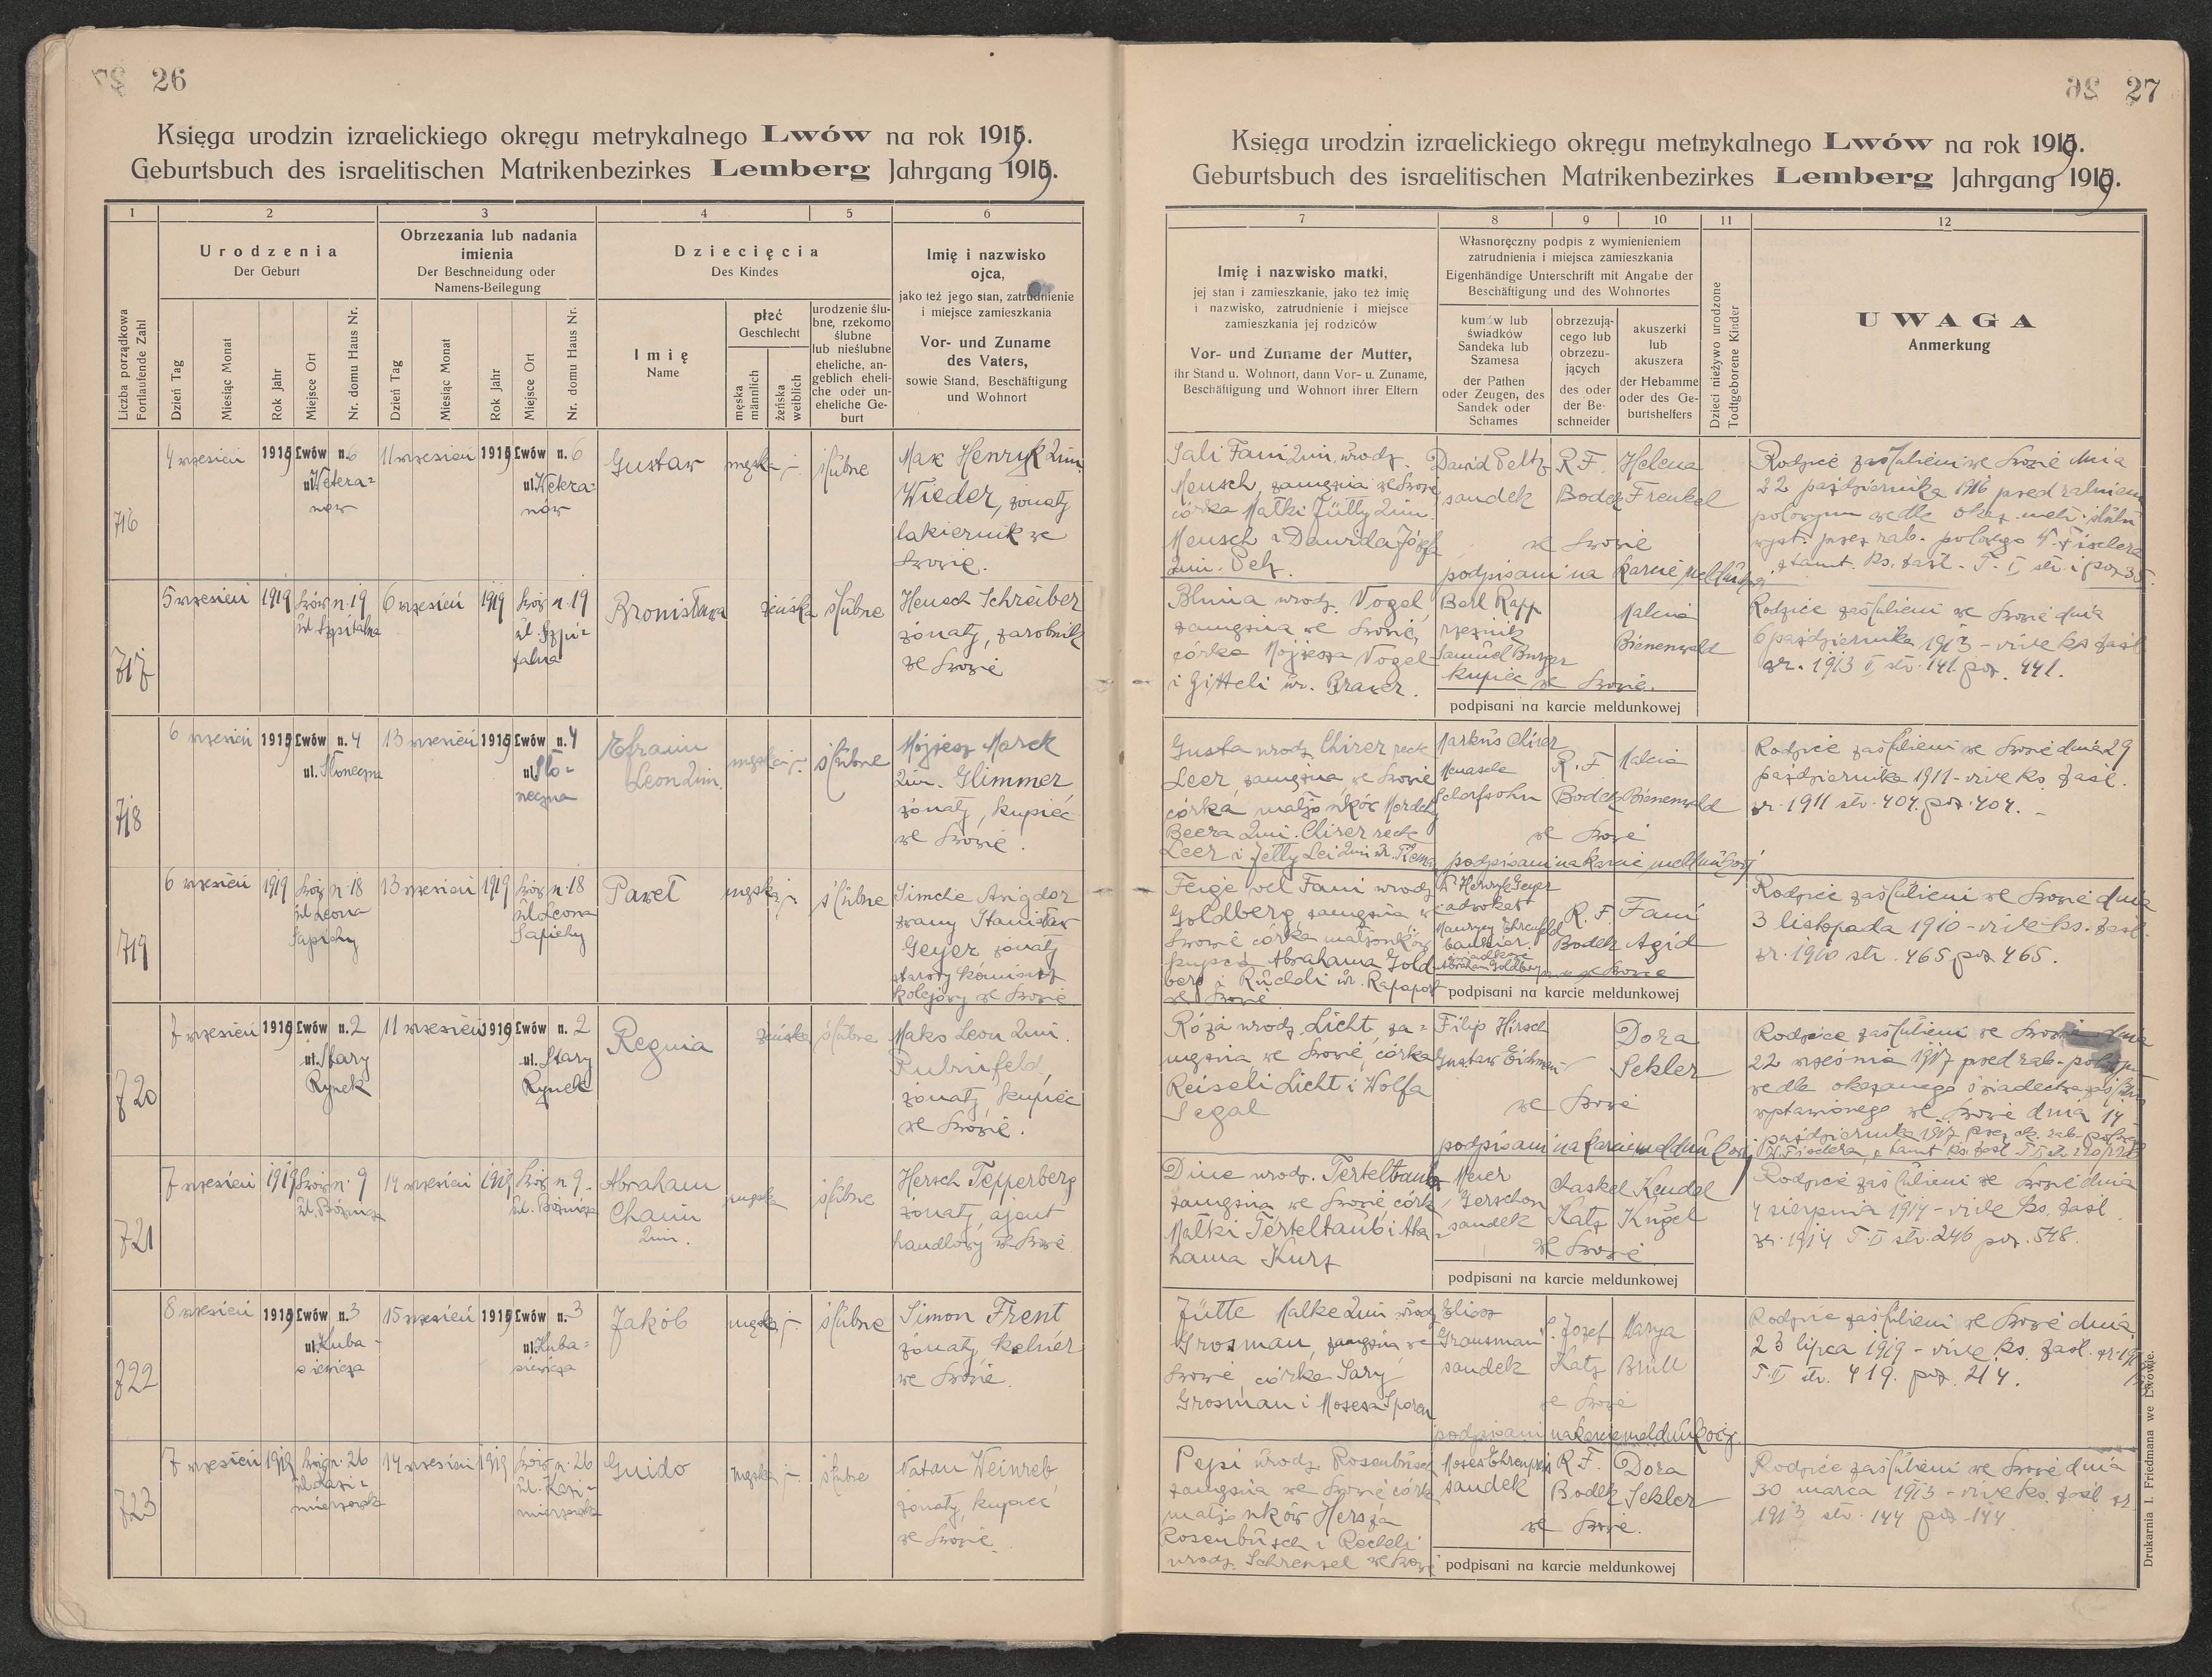 26
Księga urodzin izraelickiego okręgu metrykalnego Lwów na rok 1919.
Geburtsbuch des israelitischen Matrikenbezirkes Lemberg Jahrgang 1919.
1 2 3 4 5 6
Liczba porządkowa
Fortlaufende Zahl
Urodzenia
Der Geburt
Dzień Tag
Miesiąc Monat
Rok Jahr
Miejsce Ort
Nr. domu Haus Nr.
Obrzezania lub nadania
imienia
Der Beschneidung oder
Namens-Beilegung
Dzień Tag
Miesiąc Monat
Rok Jahr
Miejsce Ort
Nr. domu Haus Nr.
Dziecięcia
Des Kindes
Imię
Name
płeć
Geschlecht
męska
männlich
żeńska
weiblich
urodzenie ślu-
bne, rzekomo
ślubne
lub nieślubne
eheliche, an-
geblich eheli-
che oder un-
eheliche Ge-
burt
Imię i nazwisko
ojca,
jako też jego stan, zatrudnienie
i miejsce zamieszkania
Vor- und Zuname
des Vaters,
sowie Stand, Beschäftigung
und Wohnort
716
4 wrzesień 1919 Lwów n. 6
ul. Wetera=
nów
11 wrzesień 1919 Lwów n. 6
ul. Wetera=
nów
Gustaw
męska
ślubne
Max Henryk 2 im.
Wieder, żonaty
lakiernik we
Lwowie.
717
5 wrzesień 1919 Lwów n. 19
ul. Szpitalna
6 wrzesień 1919 Lwów n. 19
ul. Szpi=
talna
Bronisława
żeńska
ślubne
Hensch Schreiber
żonaty, zarobnik
we Lwowie
718
6 wrzesień 1919 Lwów n. 4
ul. Słoneczna
13 wrzesień 1919 Lwów n. 4
ul. Sło-
neczna
Efraim
Leon 2 im.
męska
ślubne
Mojżesz Marek
2 im. Glimmer
żonaty, kupiec
we Lwowie.
719
6 wrzesień 1919 Lwów n. 18
ul. Leona
Sapiehy
13 wrzesień 1919 Lwów n. 18
ul. Leona
Sapiehy
Paweł
męska
ślubne
Simche Avigdor
zwany Stanisław
Geyer żonaty
starszy komisarz
kolejowy we Lwowie
720
7 wrzesień 1919 Lwów n. 2
ul. Stary
Rynek
11 wrzesień 1919 Lwów n. 2
ul. Stary
Rynek
Regina
żeńska
ślubne
Maks Leon 2 im.
Rubinfeld,
żonaty, kupiec
we Lwowie.
721
7 wrzesień 1919 Lwów n. 9
ul. Bóżnicza
14 wrzesień 1919 Lwów n. 9
ul. Bóżnicza
Abraham
Chaim
2 im.
męska
ślubne
Hersch Tepperberg
żonaty, ajent
handlowy we Lwowie
722
8 wrzesień 1919 Lwów n. 3
ul. Kuba-
siewicza
15 wrzesień 1919 Lwów n. 3
ul. Kuba=
siewicza
Jakób
męska
ślubne
Simon Frent
żonaty, kelner
we Lwowie.
723
7 wrzesień 1919 Lwów n. 26
ul. Kazi=
mierzowska
14 wrzesień 1919 Lwów n. 26
ul. Kazi=
mierzowska
Guido
męska
ślubne
Natan Weinreb
żonaty, kupiec
we Lwowie.
27
Księga urodzin izraelickiego okręgu metrykalnego Lwów na rok 1919.
Geburtsbuch des israelitischen Matrikenbezirkes Lemberg Jahrgang 1919.
7 8 9 10 11 12
Imię i nazwisko matki,
jej stan i zamieszkanie, jako też imię
i nazwisko, zatrudnienie i miejsce
zamieszkania jej rodziców
Vor- und Zuname der Mutter,
ihr Stand u. Wohnort, dann Vor- u. Zuname,
Beschäftigung und Wohnort ihrer Eltern
Własnoręczny podpis z wymienieniem
zatrudnienia i miejsca zamieszkania
Eigenhändige Unterschrift mit Angabe der
Beschäftigung und des Wohnortes
kumów lub
świadków
Sandeka lub
Szamesa
der Pathen
oder Zeugen, des
Sandek oder
Schames
obrzezują-
cego lub
obrzezu-
jących
des oder
der Be-
schneider
akuszerki
lub
akuszera
der Hebamme
oder des Ge-
burtshelfers
Dzieci nieżywo urodzone
Todtgeborene Kinder
UWAGA
Anmerkung
Sali Fani 2 im. urodz.
Mensch, zamężna we Lwowie
córka Matki Jütty 2 im.
Mensch i Dawida Józefa
2 im. Pelz.
Dawid Peltz
sandek
R. F.
Bodek
Helena
Frenkel
we Lwowie
podpisani na karcie meldunkowej
Rodzice zaślubieni we Lwowie dnia
22 października 1916 przed rabinem
polowym wedle okaz. metr. ślubu
wyst. przez rab. polowego Fischera
z tamt. ks. zaśl. T. II str. i poz. 35.
Blima urodz. Vogel,
zamężna we Lwowie,
córka Mojżesza Vogel
i Gitteli ur. Braver.
Berl Rapp
rzeźnik
Samuel Burger
kupiec we Lwowie.
Malcia
Bienenwald
podpisani na karcie meldunkowej
Rodzice zaślubieni we Lwowie dnia
6 października 1913 - vide ks. zaśl.
zr. 1913 II str. 141. poz. 441.
Gusta urodz. Chirer recte
Leer, zamężna we Lwowie
córka małżonków Mordche
Beera 2 im. Chirer recte
Leer i Jetty Lei 2 im. ur.
Markus Chirer
Menasche
Scharfsohn
R. F
Bodek
Malcia
Bienenwald
we Lwowie
podpisani na karcie meldunkowej
Rodzice zaślubieni we Lwowie dnia 29
października 1911 - vide ks. zaśl.
zr. 1911 str. 404. poz. 404.
Feige vel Fani urodz.
Goldberg, zamężna we
Lwowie córka małżonków
kupca Abrahama Gold
berg i Ruchli ur. Rapaport
we Lwowie
Dr. Henryk Geyer
adwokat
Maurycy Ehrenfeld
bankier.
świadkowie
Abraham Goldberg
R. F
Bodek
Fani
Agid
we Lwowie
podpisani na karcie meldunkowej
Rodzice zaślubieni we Lwowie dnia
3 listopada 1910 - vide ks. zaśl.
zr. 1910 str. 465 poz 465.
Róża urodz. Licht, za=
mężna we Lwowie, córka
Reiseli Licht i Wolfa
Segal
Filip Hirsch
Gustaw
Dora
Sekler
we Lwowie
podpisani na karcie meldunkowej
Rodzice zaślubieni we Lwowie dnia
22 września 1917 przed rab. polowym
wedle okazanego świadectwa zaślubin
wystawionego we Lwowie dnia 14
października 1917 przez rab. polowego
Fischera, z tamt. ks. zaśl. T. II str.
Dine urodz. Terteltaub
zamężna we Lwowie córka
Matki Terteltaub i Abra
hama Kurz
Meier
Gerschon
sandek
Chaskel
Katz
Kendel
Kugel
we Lwowie
podpisani na karcie meldunkowej
Rodzice zaślubieni we Lwowie dnia
4 sierpnia 1914 - vide ks. zaśl.
zr. 1914 T. II str. 246 poz. 548.
Jütte Malke 2 im urodz.
Grosman, zamężna we
Lwowie córka Sary
Grosman i Mosesa
Eliasz
Grausman
sandek
Jozef
Katz
Marya
Brüll
we Lwowie
podpisani na karcie meldunkowej
Rodzice zaślubieni we Lwowie dnia
23 lipca 1919 - vide ks. zaśl. zr. 1919
T. II str. 419. poz. 214.
Pepi urodz. Rosenbusch
zamężna we Lwowie córka
małżonków Hersza
Rosenbusch i Recheli
urodz. Schrenzel we Lwowie
Moses Ehrenpreis
sandek
R. F.
Bodek
Dora
Sekler
we Lwowie.
podpisani na karcie meldunkowej
Rodzice zaślubieni we Lwowie dnia
30 marca 1913 - vide ks. zaśl. zr.
1913 str. 144 poz 144
Drukarnia I. Friedmana we Lwowie.